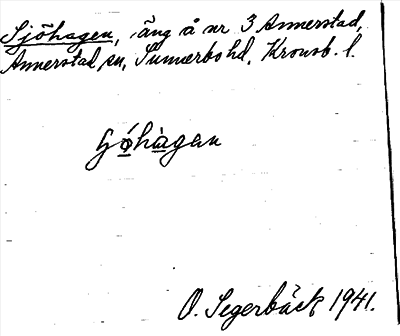 Sjöhagen, äng å nr 3 Annerstad,
Annerstad sn, Sunnerbo hd, Kronob. l.
O. Segerbäck 1941.